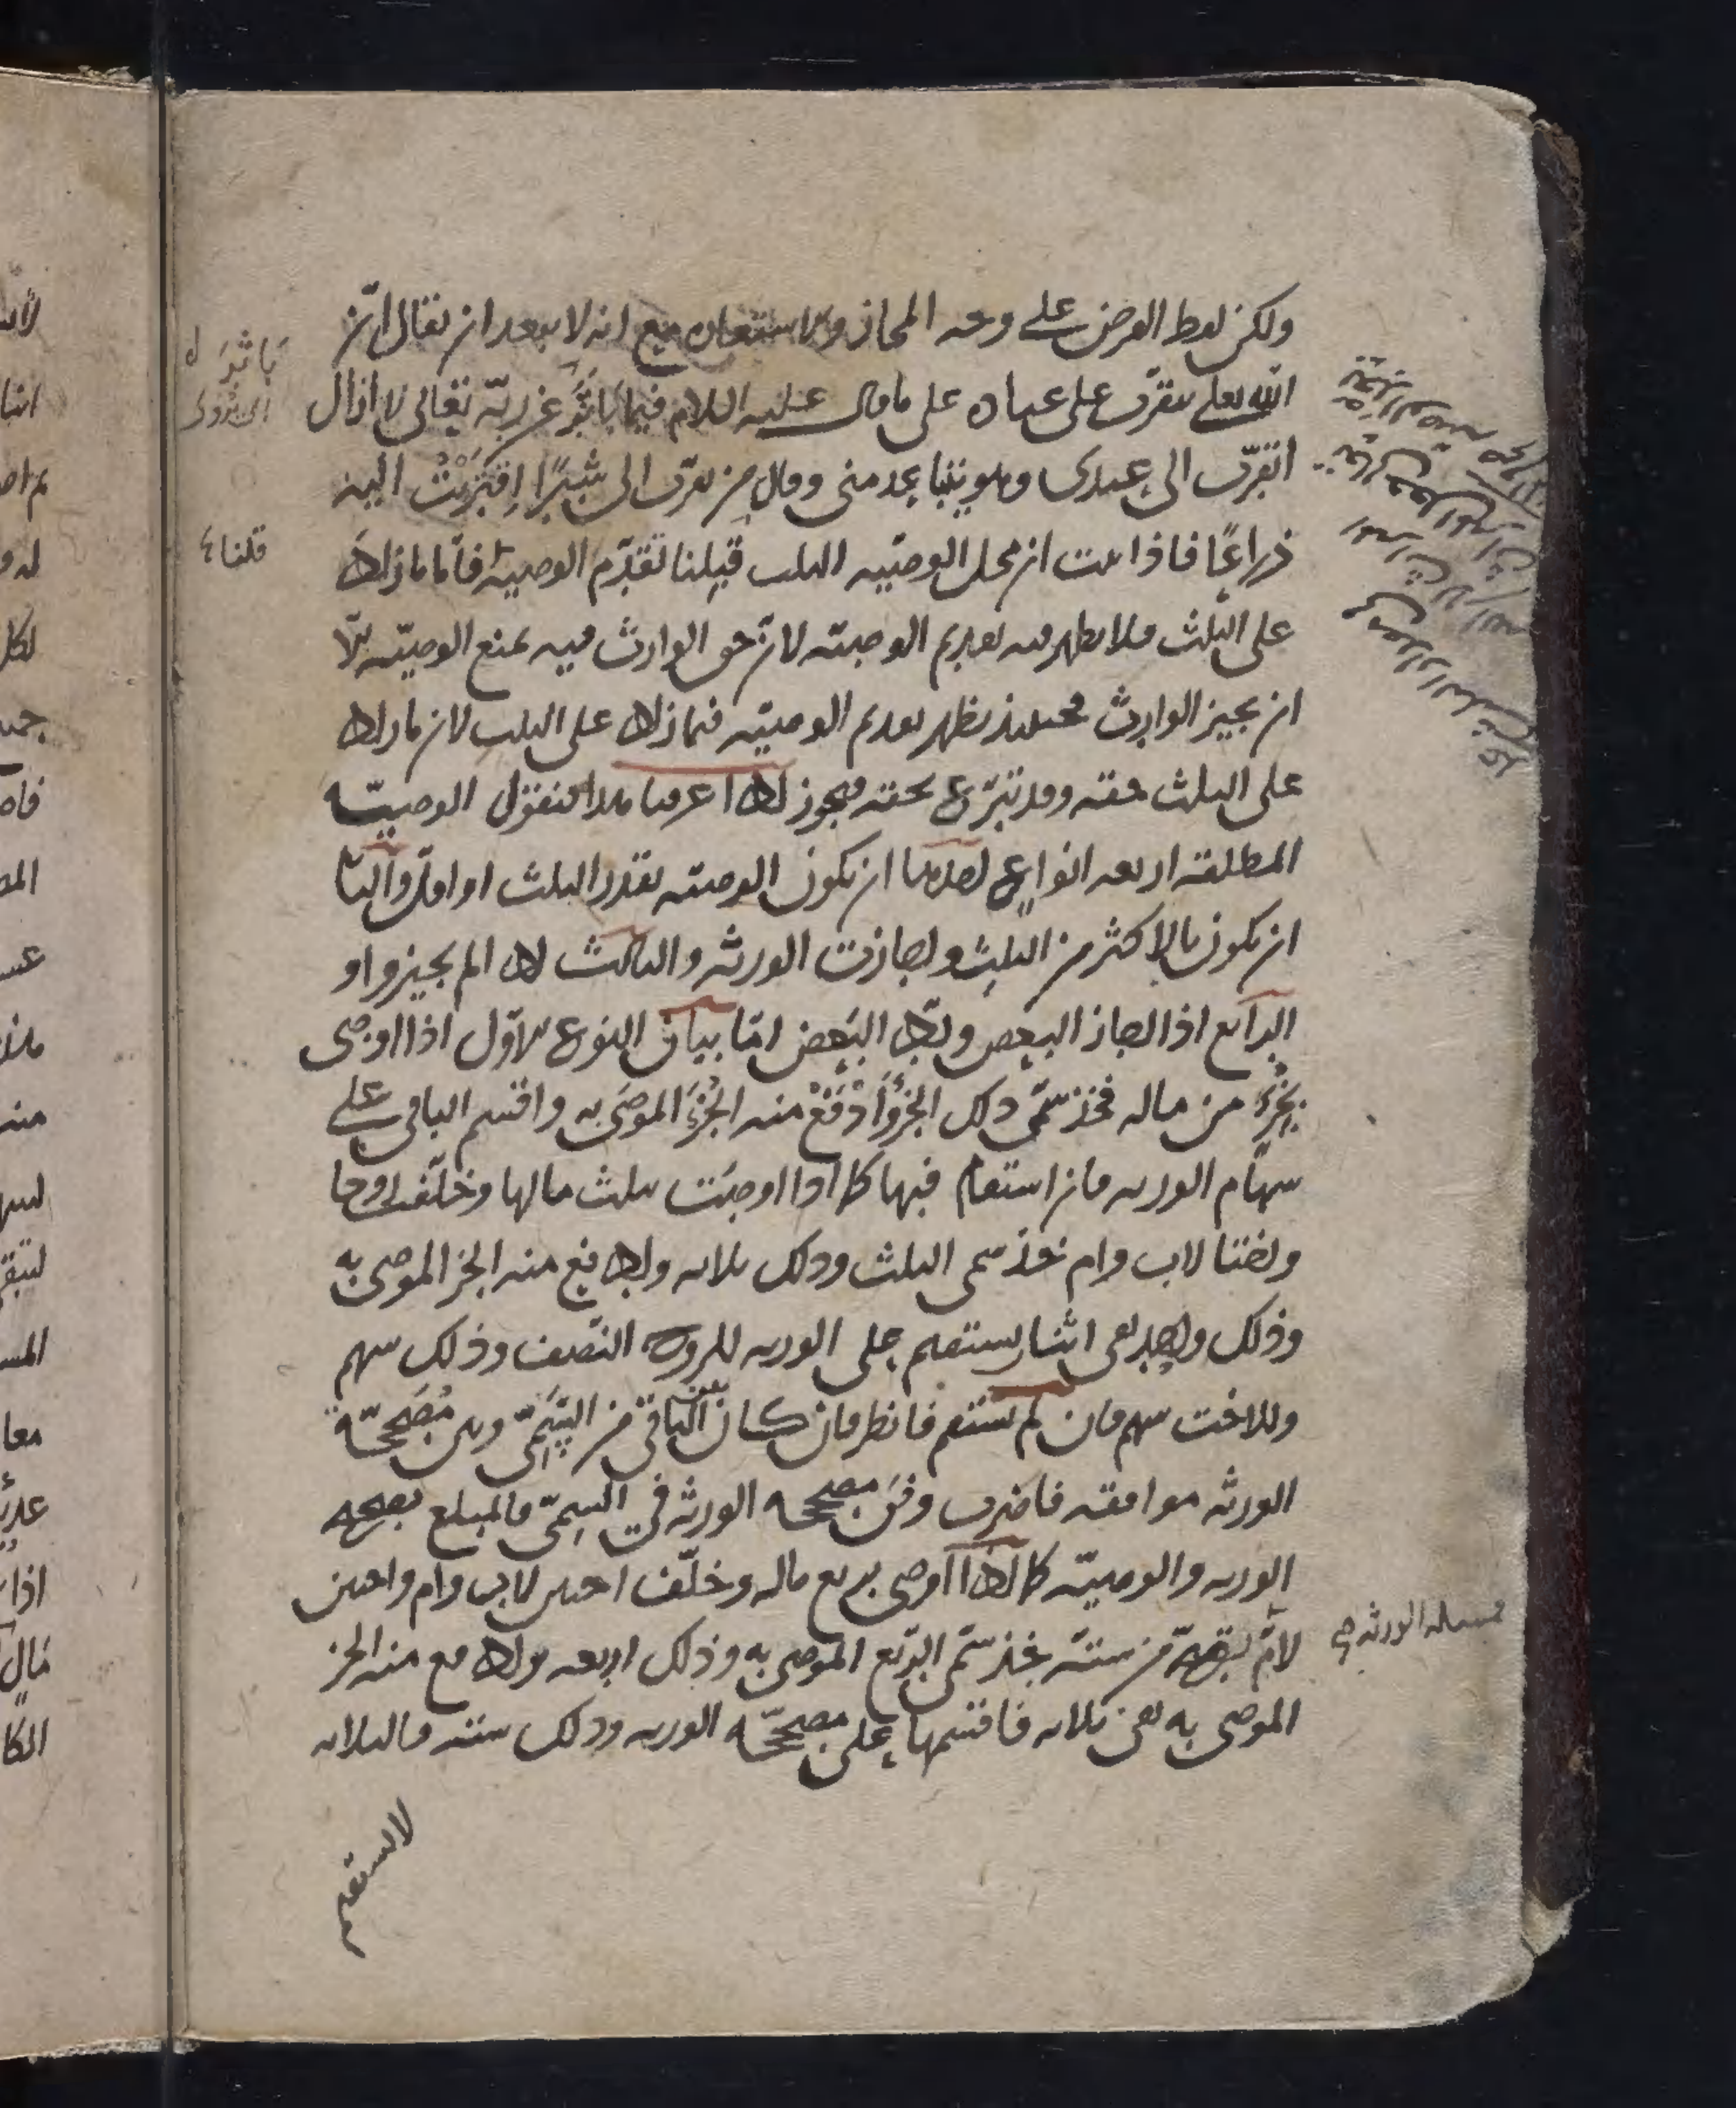 ولكن لفظ القرض على وجه المجاز والاستعارة مع انه لا يبعد ان يقال ان
الله تعالى يتقرب على عباده على ما قال عليه السلام فيما يأثر عن ربه تعالى لا ازال
اتقرب الى عبدى وهو يتباعد منى وقال من تقرب الى شبرًا اقتربت اليه
ذراعًا فاذا ثبت ان محل الوصية الثلث قلنا تقدم الوصية فاما ما زاد
على الثلث فلا يظهر فيه تقديم الوصية لان حق الوارث فيه يمنع الوصية الا
ان يجيز الوارث فحينئذ يظهر تقديم الوصية فيما زاد على الثلث لان ما زاد
على الثلث حقه وقد تبرع بحقه فيجوز اذا عرفنا هذا فنقول الوصية
المطلقة اربعة انواع احدها ان يكون الوصية بقدر الثلث او اقل والثانى
ان يكون بالاكثر من الثلث واجازت الورثة والثالث اذا لم يجيزوا و
الرابع اذا اجاز البعض ورد البعض اما بيان النوع الاول اذا اوصى
بجزء من ماله فخذ سمى ذلك الجزء وادفع منه الجزء الموصى به واقسم الباقى على
سهام الورثة فان استقام فبها كما اذا اوصت بثلث مالها وخلفت زوجا
واختا لاب وام فخذ سمى الثلث وذلك ثلاثة وادفع منه الجزء الموصى به
وذلك واحد بقى اثنان يستقيم على الورثة للزوج النصف وذلك سهم
وللاخت سهم فان لم يستقم فانظر فان كان بين الباقى من السمى وبين مصححة
الورثة موافقة فاضرب وفق مصححة الورثة فى السمى فالمبلغ تصحيح
الورثة والوصية كما اذا اوصى بربع ماله وخلف اختين لاب وام واختين
لام تصحيحه من ستة فخذ سمى الربع الموصى به وذلك اربعة وادفع منه الجزء
الموصى به بقى ثلاثة فاقسمها على مصححة الورثة وذلك ستة فالثلاثة
لا يستقيم
يأثر
اى يروى
قلنا
مسئلة الورثة